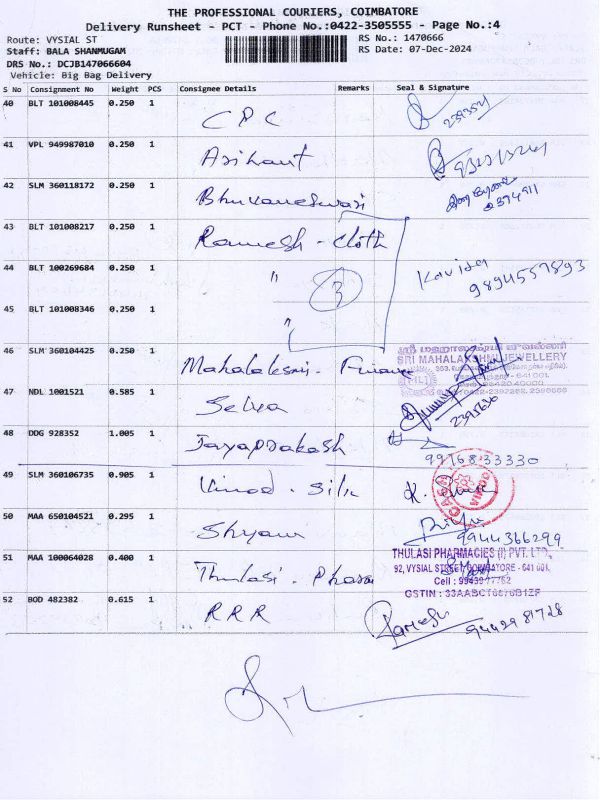 THE PROFESSIONAL COURIERS, COIMBATORE
Delivery Runsheet - PCT - Phone No.:0422-3505555 - Page No.:4
Route: VYSIAL ST
RS No.: 1470666
Staff: BALA SHANMUGAM
RS Date: 07-Dec-2024
DRS No.: DCJB147066604
Vehicle: Big Bag Delivery
S No Consignment No Weight PCS Consignee Details Remarks Seal & Signature
40 BLT 101008445 0.250 1 CPC
41 VPL 949987010 0.250 1 Arihant
42 SLM 360118172 0.250 1 Bhuvaneswari
43 BLT 101008217 0.250 1 Ramesh - Cloth
44 BLT 100269684 0.250 1 " 3 Kavida 9894557893
45 BLT 101008346 0.250 1 "
46 SLM 360104425 0.250 1 Mahalakshmi - Finance
SRI MAHALAKSHMI JEWELLERY
47 NDL 1001521 0.585 1 Selva
48 DDG 928352 1.005 1 Jayaprakash 9976833330
49 SLM 360106735 0.905 1 Vinod - Silk
CASH
VINOD
50 MAA 650104521 0.295 1 Shyam 9944366299
51 MAA 100064028 0.400 1 Thulasi - Pharma
THULASI PHARMACIES (I) PVT. LTD.,
92, VYSIAL STREET, COIMBATORE - 641 001.
Cell : 9943977762
GSTIN :
52 BOD 482382 0.615 1 RRR Ramesh 9442981728